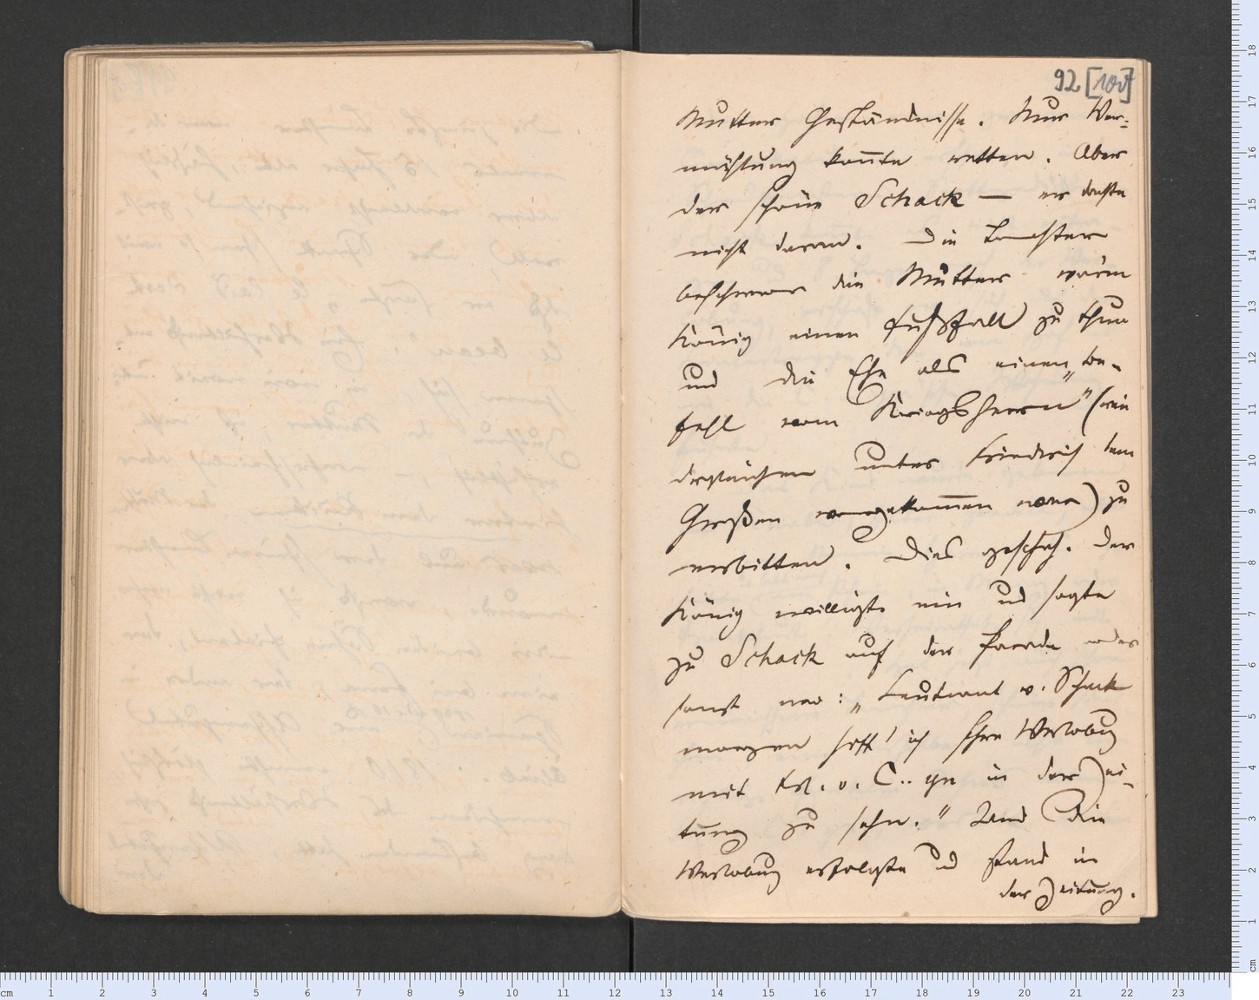 92 [100]
Mutter Geständnisse. Nur Ver-
mählung konnte retten. Aber
der schöne Schack — er dachte
nicht daran. Die Tochter
beschwor die Mutter vorm
König einen Fußfall zu thun
und die Ehe als einen „Be-
fehl vom Kriegsherrn" (wie
dergleichen unter Friedrich dem
Großen vorgekommen war) zu
erbitten. Dies geschah. Der
König willigte ein und sagte
zu Schack auf der Parade oder
sonst wo: „Leutnant v. Schack
morgen hoff' ich Ihre Verlobung
mit Frl. v. C..yn in der Zei-
tung zu sehn." Und die
Verlobung erfolgte und stand in
der Zeitung.